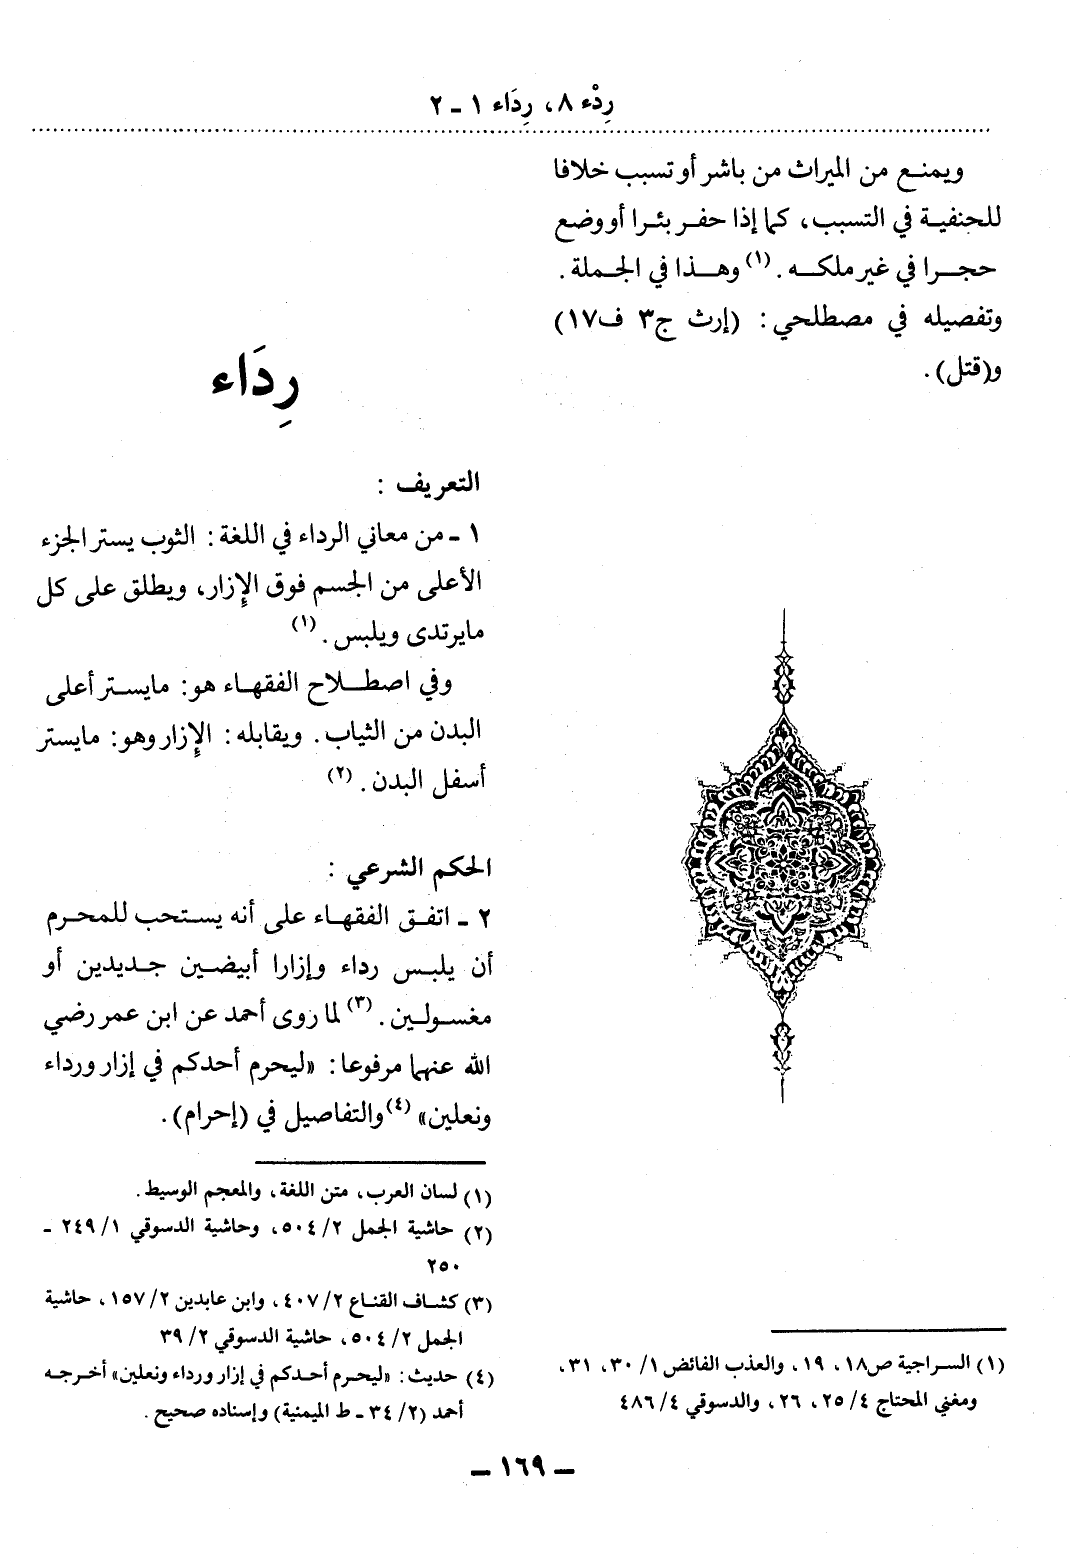 رِدْء ٨، رِدَاء ١ ـ ٢
ويمنع من الميراث من باشر أو تسبب خلافا
للحنفية في التسبب، كما إذا حفر بئرا أو وضع
حجرا في غير ملكه. (١) وهذا في الجملة.
وتفصيله في مصطلحي: (إرث ج٣ ف١٧)
و(قتل).
(١) السراجية ص١٨، ١٩، والعذب الفائض ١/ ٣٠، ٣١،
ومغني المحتاج ٤/ ٢٥، ٢٦، والدسوقي ٤/ ٤٨٦
رِدَاء
التعريف :
١ ـ من معاني الرداء في اللغة: الثوب يستر الجزء
الأعلى من الجسم فوق الإزار، ويطلق على كل
مايرتدى ويلبس. (١)
وفي اصطلاح الفقهاء هو: مايستر أعلى
البدن من الثياب. ويقابله: الإزار وهو: مايستر
أسفل البدن. (٢)
الحكم الشرعي :
٢ ـ اتفق الفقهاء على أنه يستحب للمحرم
أن يلبس رداء وإزارا أبيضين جديدين أو
مغسولين. (٣) لما روى أحمد عن ابن عمر رضي
الله عنهما مرفوعا: «ليحرم أحدكم في إزار ورداء
ونعلين» (٤) والتفاصيل في (إحرام).
(١) لسان العرب، متن اللغة، والمعجم الوسيط.
(٢) حاشية الجمل ٢/ ٥٠٤، وحاشية الدسوقي ١/ ٢٤٩ ـ
٢٥٠
(٣) كشاف القناع ٢/ ٤٠٧، وابن عابدين ٢/ ١٥٧، حاشية
الجمل ٢/ ٥٠٤، حاشية الدسوقي ٢/ ٣٩
(٤) حديث: «ليحرم أحدكم في إزار ورداء ونعلين» أخرجه
أحمد (٢/ ٣٤ ـ ط الميمنية) وإسناده صحيح.
ـ ١٦٩ ـ